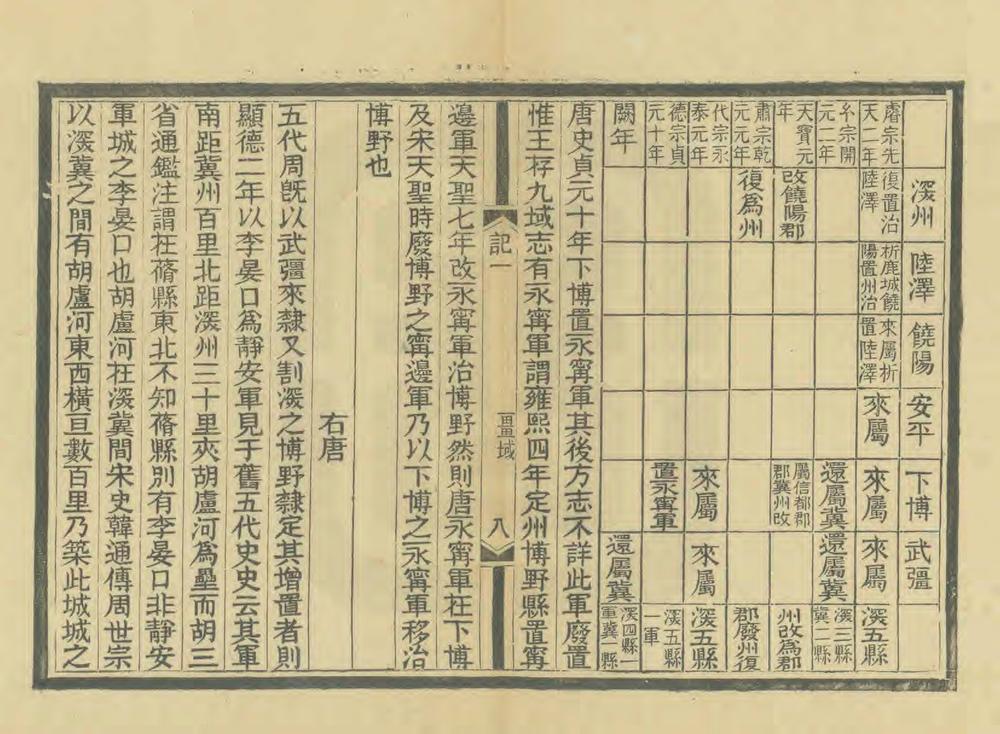 㴱州
陸澤
饒陽
安平
下博
武彊
睿宗先
天二年
復置治
陸澤
析鹿城饒
陽置州治
來屬析
置陸澤
來屬
來屬
來屬
㴱五縣
宗開
元二年
還屬冀
還屬冀
㴱三縣
冀二縣
天寶元
年
改饒陽郡
屬信都郡
郡冀州改
州改為郡
肅宗乾
元元年
復為州
郡廢州復
代宗永
泰元年
來屬
來屬
㴱五縣
德宗貞
元十年
置永甯軍
㴱五縣
一軍
闕年
還屬冀
㴱四縣一
軍冀一縣
唐史貞元十年下博置永甯軍其後方志不詳此軍廢置
惟王存九域志有永甯軍謂雍熙四年定州博野縣置甯
邊軍天聖七年改永甯軍治博野然則唐永甯軍在下博
及宋天聖時廢博野之甯邊軍乃以下博之永甯軍移治
博野也
右唐
五代周旣以武彊來隸又割㴱之博野隸定其增置者則
顯德二年以李晏口為靜安軍見于舊五代史史云其軍
南距冀州百里北距㴱州三十里夾胡盧河為壘而胡三
省通鑑注謂在蓨縣東北不知蓨縣別有李晏口非靜安
軍城之李晏口也胡盧河在㴱冀間宋史韓通傳周世宗
以㴱冀之間有胡盧河東西橫亘數百里乃築此城城之
記一
畺域
八